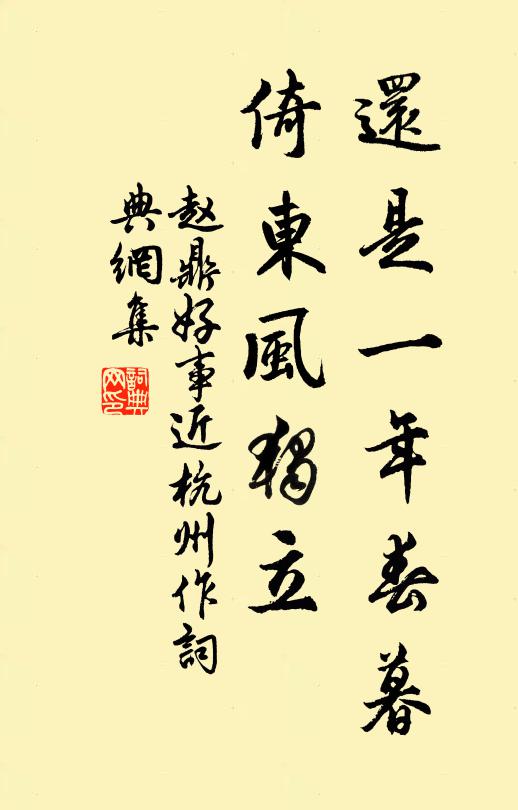 還是一年春暮
倚東風獨立
赵鼎好事近杭州作詞
典網集
詞典網印